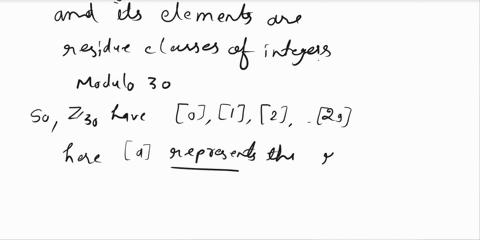 and its elements are
residue classes of integers
Modulo 30
So, Z₃₀ have [0], [1], [2], ..[29]
here [a] represents the r